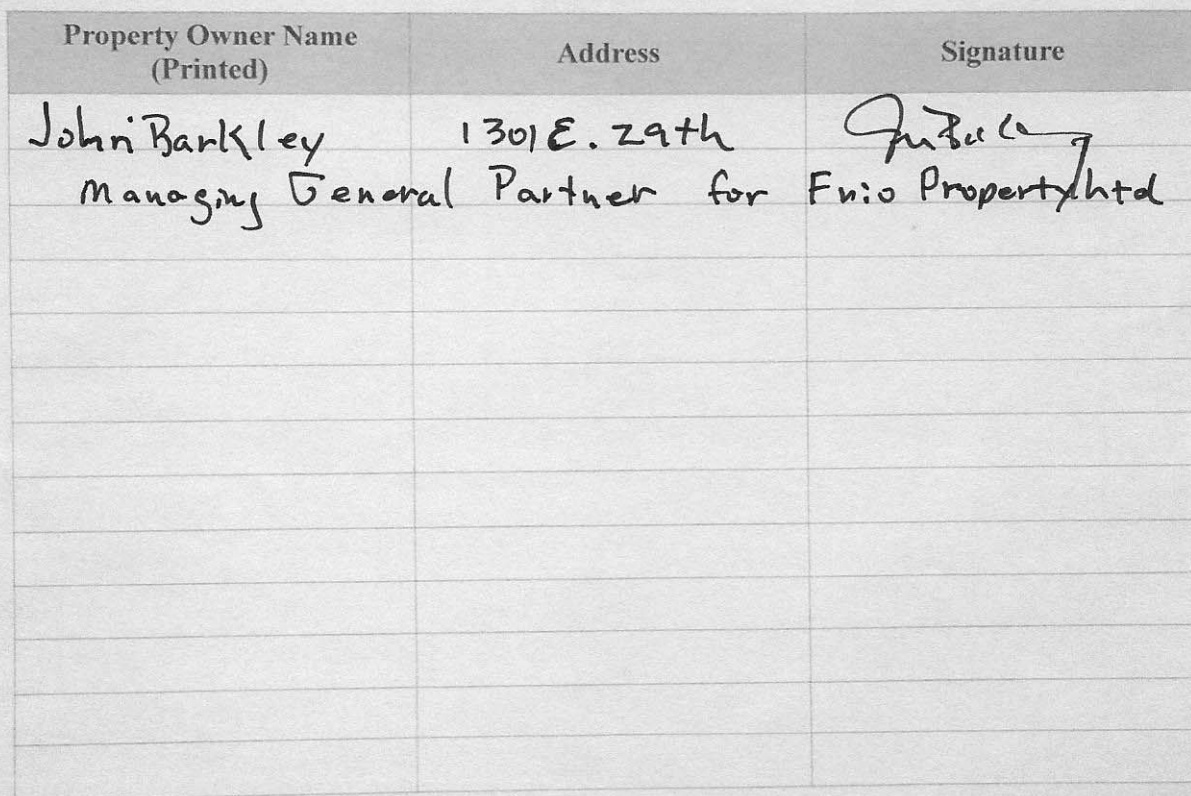 Property Owner Name (Printed) Address Signature
John Barkley 1301 E. 29th
Managing General Partner for Frio Property Ltd